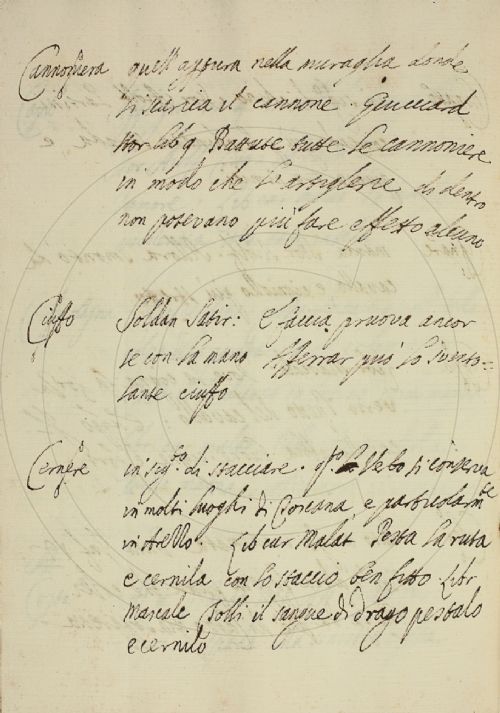 Cannoniera quell'apertura nella muraglia donde
si scarica il cannone. Guicciard
stor lib 9 Battute tutte le cannoniere
in modo che l'artiglerie di dentro
non potevano più fare effetto alcuno
Ciuffo Soldan Satir: E faccia pruova ancor
se con la mano Afferrar può lo svento=
lante ciuffo
Cernere in sig.to di stacciare. q.to Verbo si conserva
in molti luoghi di Toscana e particolarm.te
in Arezzo. Lib cur Malat Pesta la ruta
e cernila con lo staccio ben fitto Libr
Mascale Tolli il sangue di drago pestalo
e cernilo